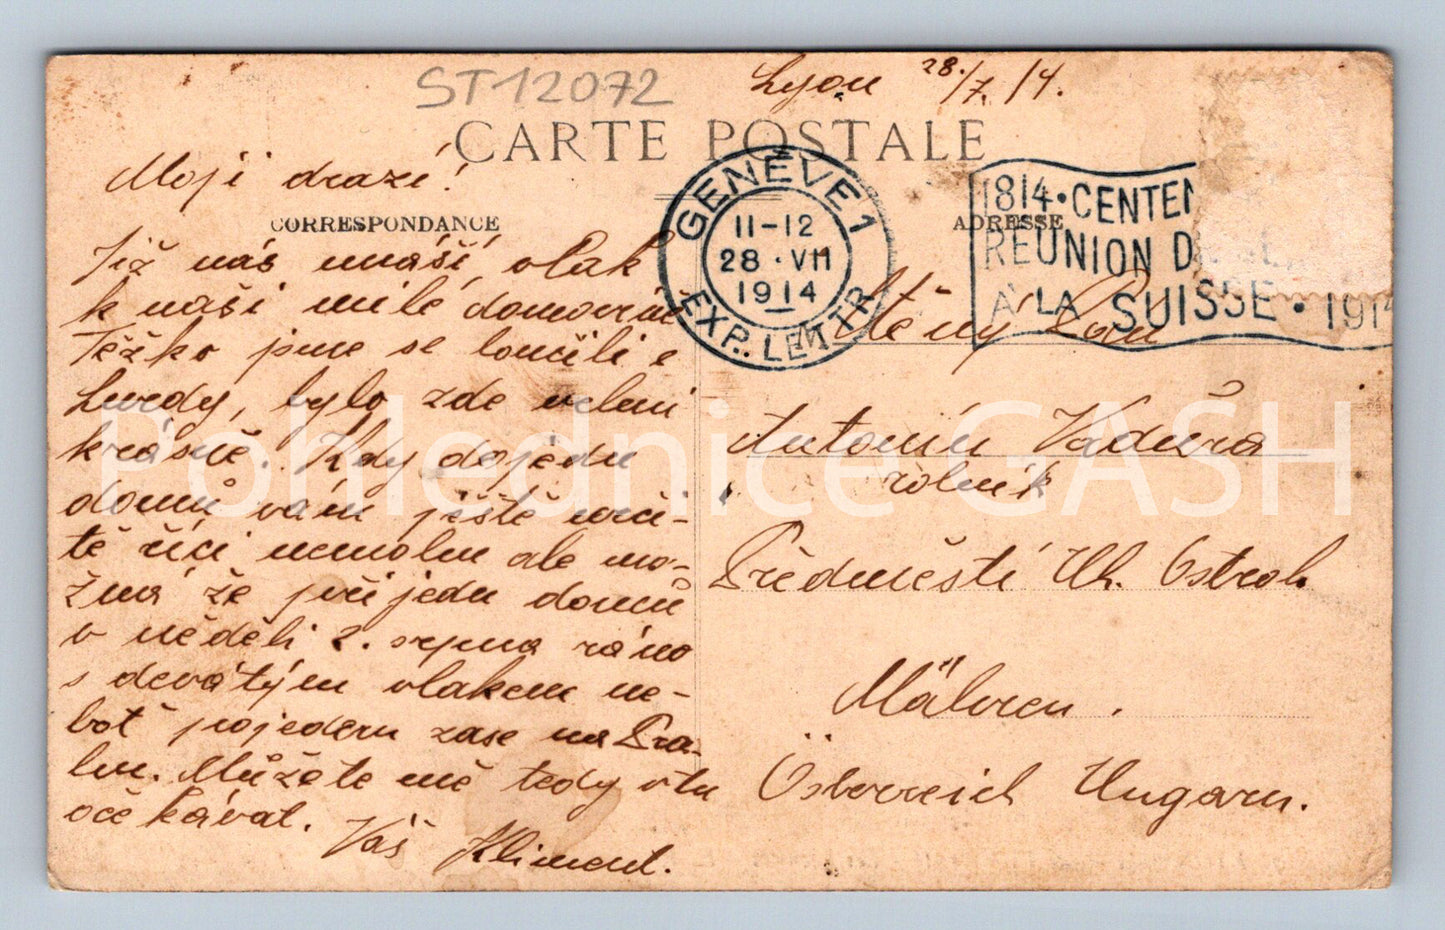 ST12072
Lyon 28./7./14.
CARTE POSTALE
Moji drazí!
CORRESPONDANCE
ADRESSE
GENÈVE 1
11-12
28 · VII
1914
EXP. LETTR
1814 · CENTEN
RÉUNION D
À LA SUISSE · 1914
Již nás unáší vlak
k naši milé domovině
Těžko jsme se loučili z
Lurdy, bylo zde velmi
krásně. Kdy dojedu
domů vám ještě urči-
tě říci nemohu ale mo-
žná že přijedu domů
v něděli 2. srpna ráno
s devátým vlakem ne-
boť pojedem zase na Pra-
hu. Můžete mě tedy v tu
očekávat.
Váš Kliment.
Ctěný Pan
Antonín Vaďura
rolník
Předměstí Uh. Ostroh.
Mähren.
Österreich Ungarn.
Pohlednice GASH